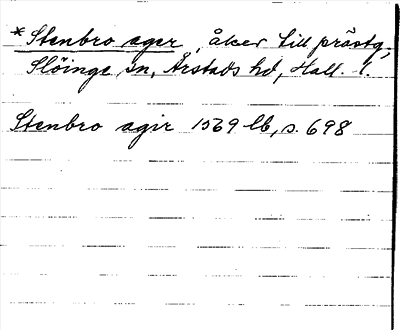 *Stenbro ager, åker till prästg,
Slöinge sn, Årstads hd, Hall. l.
Stenbro agir 1569 lb, s. 698